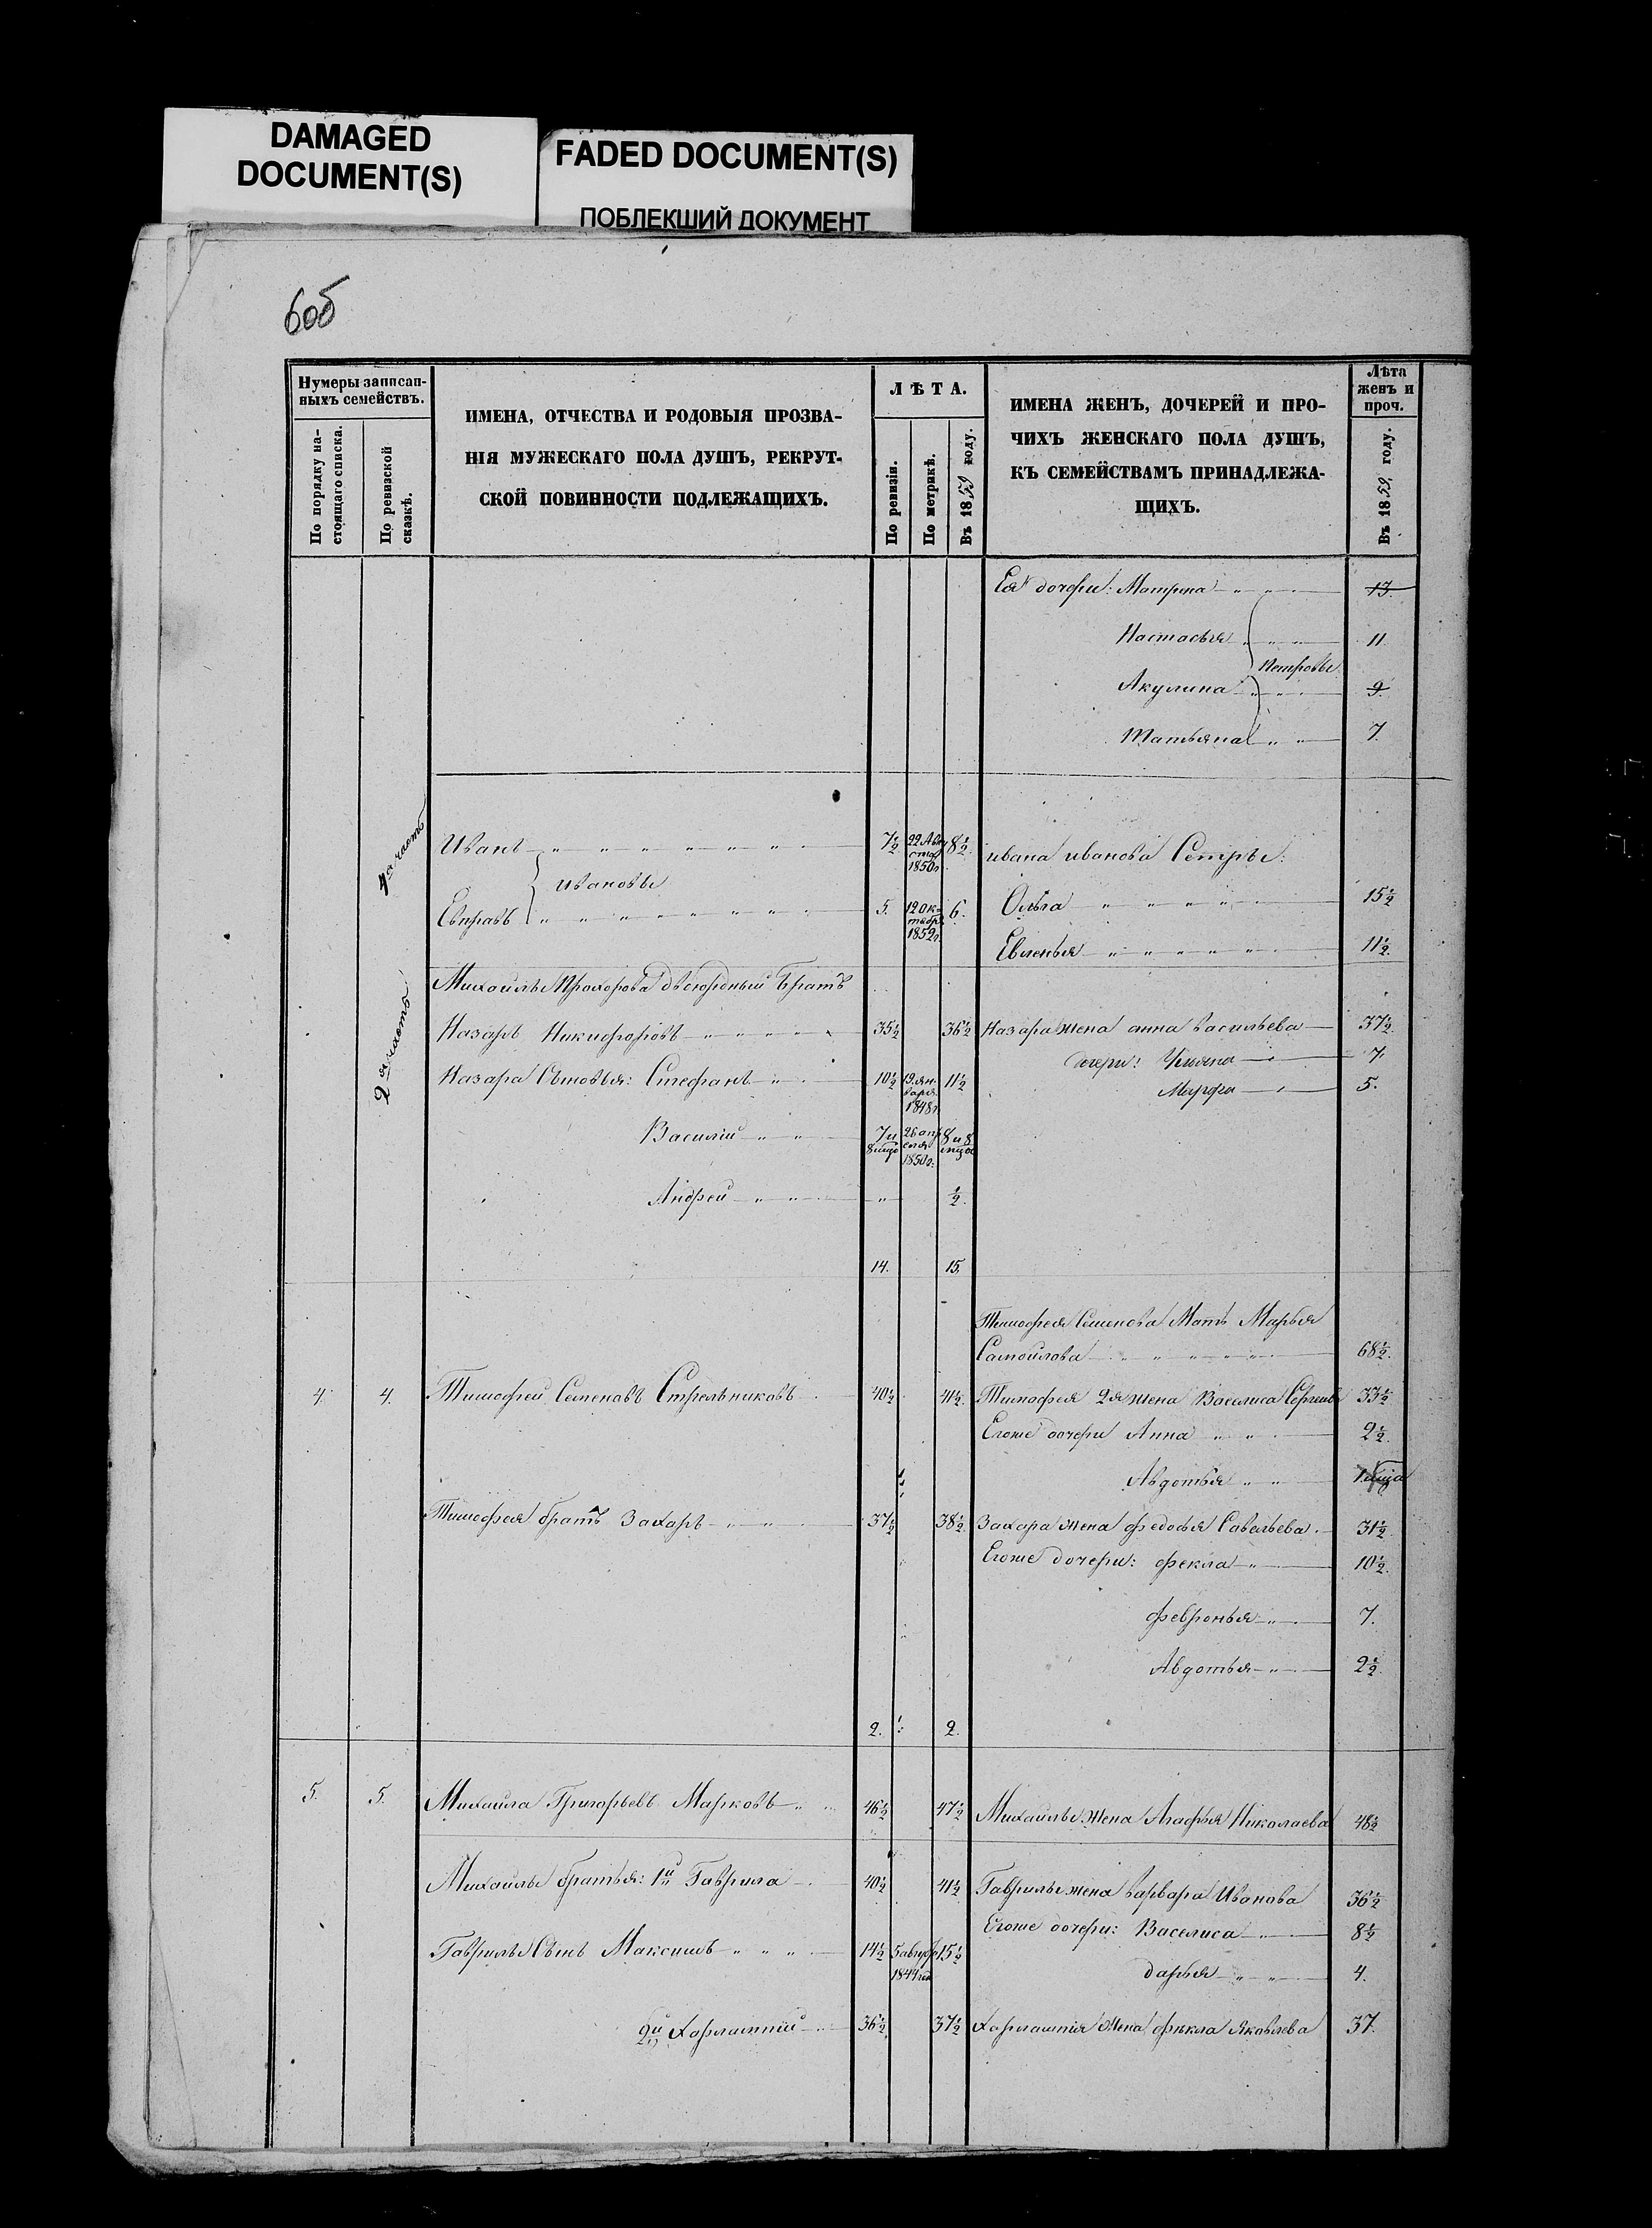 DAMAGED
DOCUMENT(S)
FADED DOCUMENT(S)
ПОБЛЕКШИЙ ДОКУМЕНТ
6об
Нумеры записан-
ныхъ семействъ.
По порядку на-
стоящаго списка.
По ревизской
сказкѣ.
ИМЕНА, ОТЧЕСТВА И РОДОВЫЯ ПРОЗВА-
НІЯ МУЖЕСКАГО ПОЛА ДУШЪ, РЕКРУТ-
СКОЙ ПОВИННОСТИ ПОДЛЕЖАЩИХЪ.
ЛѢТА.
По ревизіи.
По метрикѣ.
Въ 1859 году.
ИМЕНА ЖЕНЪ, ДОЧЕРЕЙ И ПРО-
ЧИХЪ ЖЕНСКАГО ПОЛА ДУШЪ,
КЪ СЕМЕЙСТВАМЪ ПРИНАДЛЕЖА-
ЩИХЪ.
Лѣта
женъ и
проч.
Въ 1859, году.
Ея дочери: Матрена 13.
Настасья 11.
Петровы
Акулина 9.
Татьяна 7.
4я часть
Иванъ 7½ 22 Авгу
ста
1850г. 8½
Ивановы
Евграфъ 5. 12 Ок
тября
1852г. 6.
ивана иванова Сестры:
Ольга 15½
Евленья 11½.
2я часть
Михайлы Прохорова двоюродный братъ
Назаръ Никифоровъ 35½ 36½ Назара жена анна васильева 37½
дочери: Ульяна 7.
Назара Сыновья: Стефанъ 10½ 19. ян-
варя
1848г. 11½
Марфа 5.
Василій 7 и
8 мцо 26 апр
еля
1850г. 8 и 8
мцов
Андрей ½.
14. 15.
Тимофея Семенова Мать Марья
Самойлова 68½.
4. 4. Тимофей Семеновъ Стрельниковъ 40½ 41½. Тимофея 2я жена Василиса Сергеева 33½
Егоже дочери Анна 2½.
Авдотья
Тимофея братъ Захаръ 37½ 38½. Захара жена федосья Савельева. 31½
Егоже дочери: фекла 10½.
февронья 7.
Авдотья 2½.
2. 2.
5. 5. Михайла Григорьевъ Марковъ 46½ 47½ Михайлы жена Агафья Николаева 48½
Михайлы братья: 1й Гаврила 40½ 41½ Гаврилы жена варвара Иванова 36½
Егоже дочери: Василиса 8½
Гаврилы Сынъ Максимъ 14½ 15½
1844
дарья 4.
2й Харлампій 36½ 37½ Харлампія жена, фекла Яковлева 37.